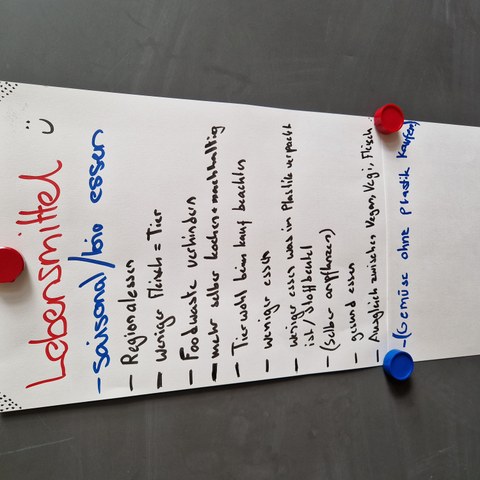 Lebensmittel
- saisonal/bio essen
- Regionalessen
- weniger Fleisch = Tier
- Foodwaste verhindern
- mehr selber kochen + nachhaltig
- Tierwohl beim kauf beachten
- weniger essen
- weniger essen was in Plastik verpackt
ist / Stoffbeutel
- (Selber anpflanzen)
- gesund essen
- Ausgleich zwischen Vegan, Vegi, Fleisch
- (Gemüse ohne Plastik kaufen)